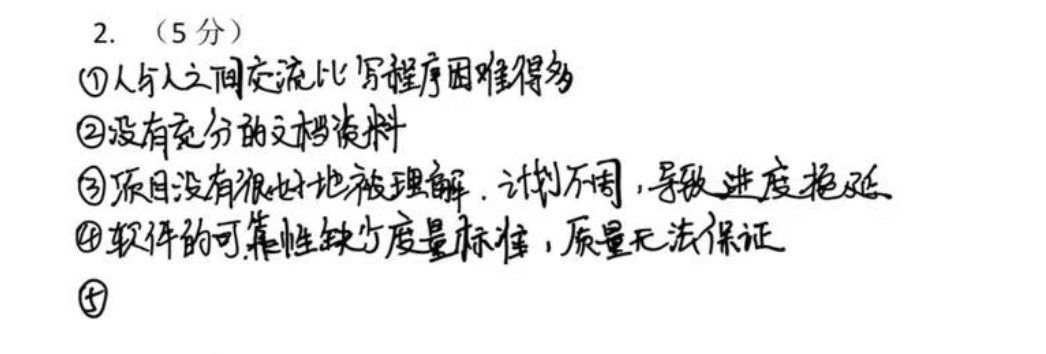 2. （5 分）
①人与人之间交流比写程序困难得多
②没有充分的文档资料
③项目没有很好地被理解．计划不周，导致进度拖延
④软件的可靠性缺少度量标准，质量无法保证
⑤